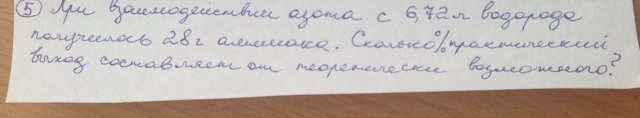 ⑤ При взаимодействии азота с 6,72 л водорода
получилось 28 г аммиака. Сколько % практический
выход составляет от теоретически возможного?